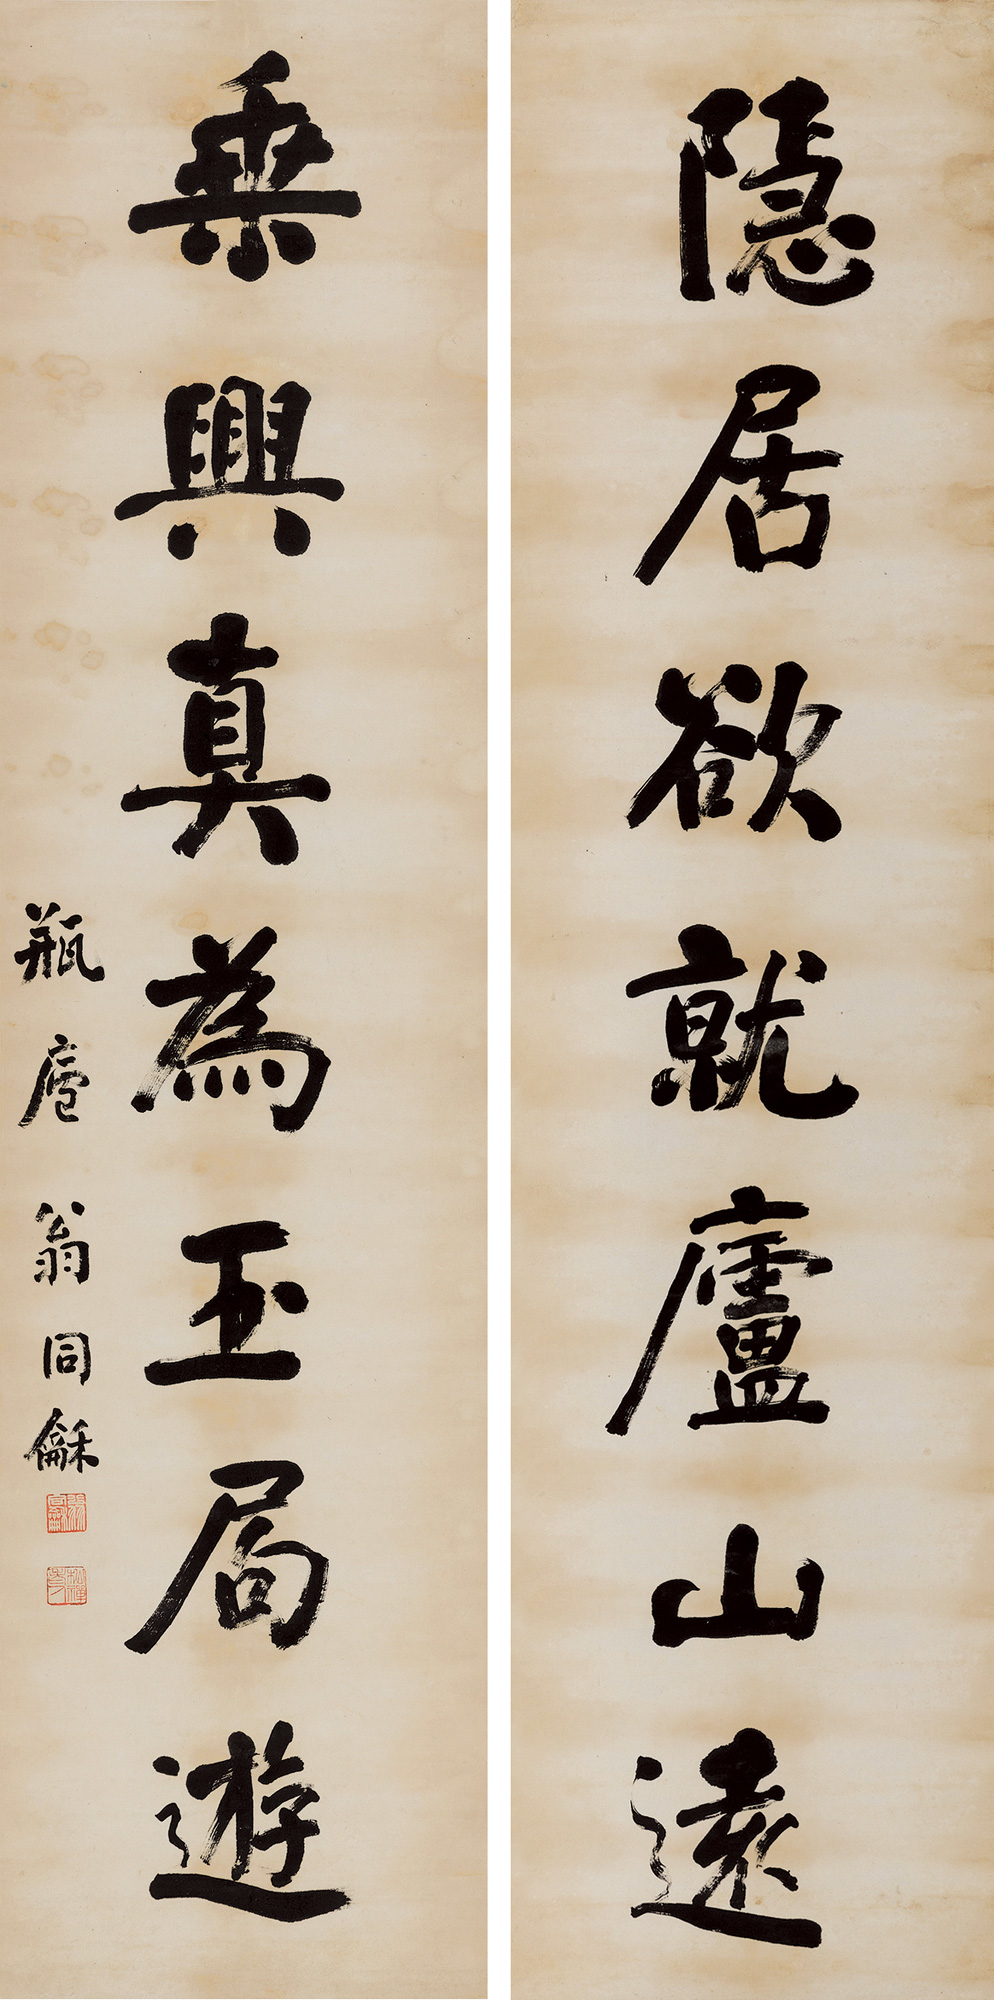 隱居欲就廬山遠
乘興真為玉局遊
瓶廬 翁同龢